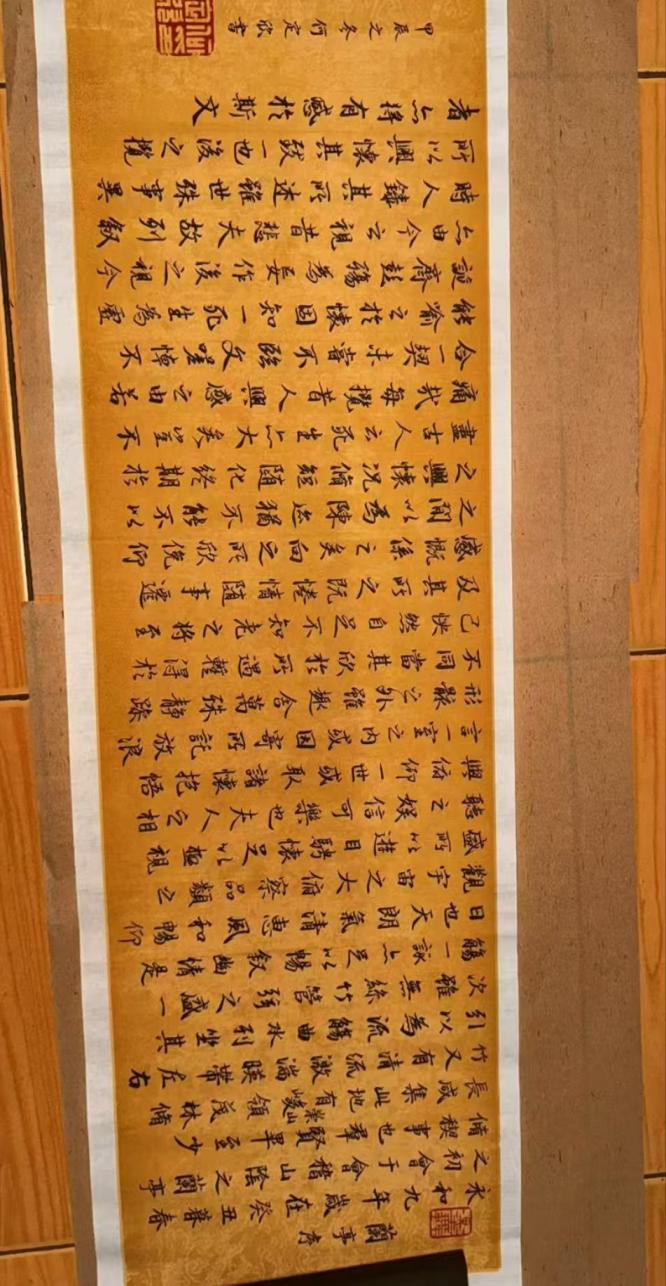 蘭亭序
永和九年歲在癸丑暮春
之初會于會稽山陰之蘭亭
脩禊事也羣賢畢至少
長咸集此地有崇山峻領茂林脩
竹又有清流激湍暎帶左右
引以為流觴曲水列坐其
次雖無絲竹管弦之盛一
觴一詠亦足以暢敘幽情是
日也天朗氣清惠風和暢仰
觀宇宙之大俯察品類之
盛所以遊目騁懷足以極視
聽之娛信可樂也夫人之相
與俯仰一世或取諸懷抱悟
言一室之內或因寄所託放浪
形骸之外雖趣舍萬殊靜躁
不同當其欣於所遇蹔得於
己怏然自足不知老之將至
及其所之既惓情隨事遷
感慨係之矣向之所欣俛仰
之間以為陳迹猶不能不以
之興懷況脩短隨化終期於
盡古人云死生亦大矣豈不
痛哉每攬昔人興感之由若
合一契未嘗不臨文嗟悼不
能喻之於懷固知一死生為虛
誕齊彭殤為妄作後之視今
亦由今之視昔悲夫故列敘
時人錄其所述雖世殊事異
所以興懷其致一也後之攬
者亦將有感於斯文
甲辰之冬何定欣書